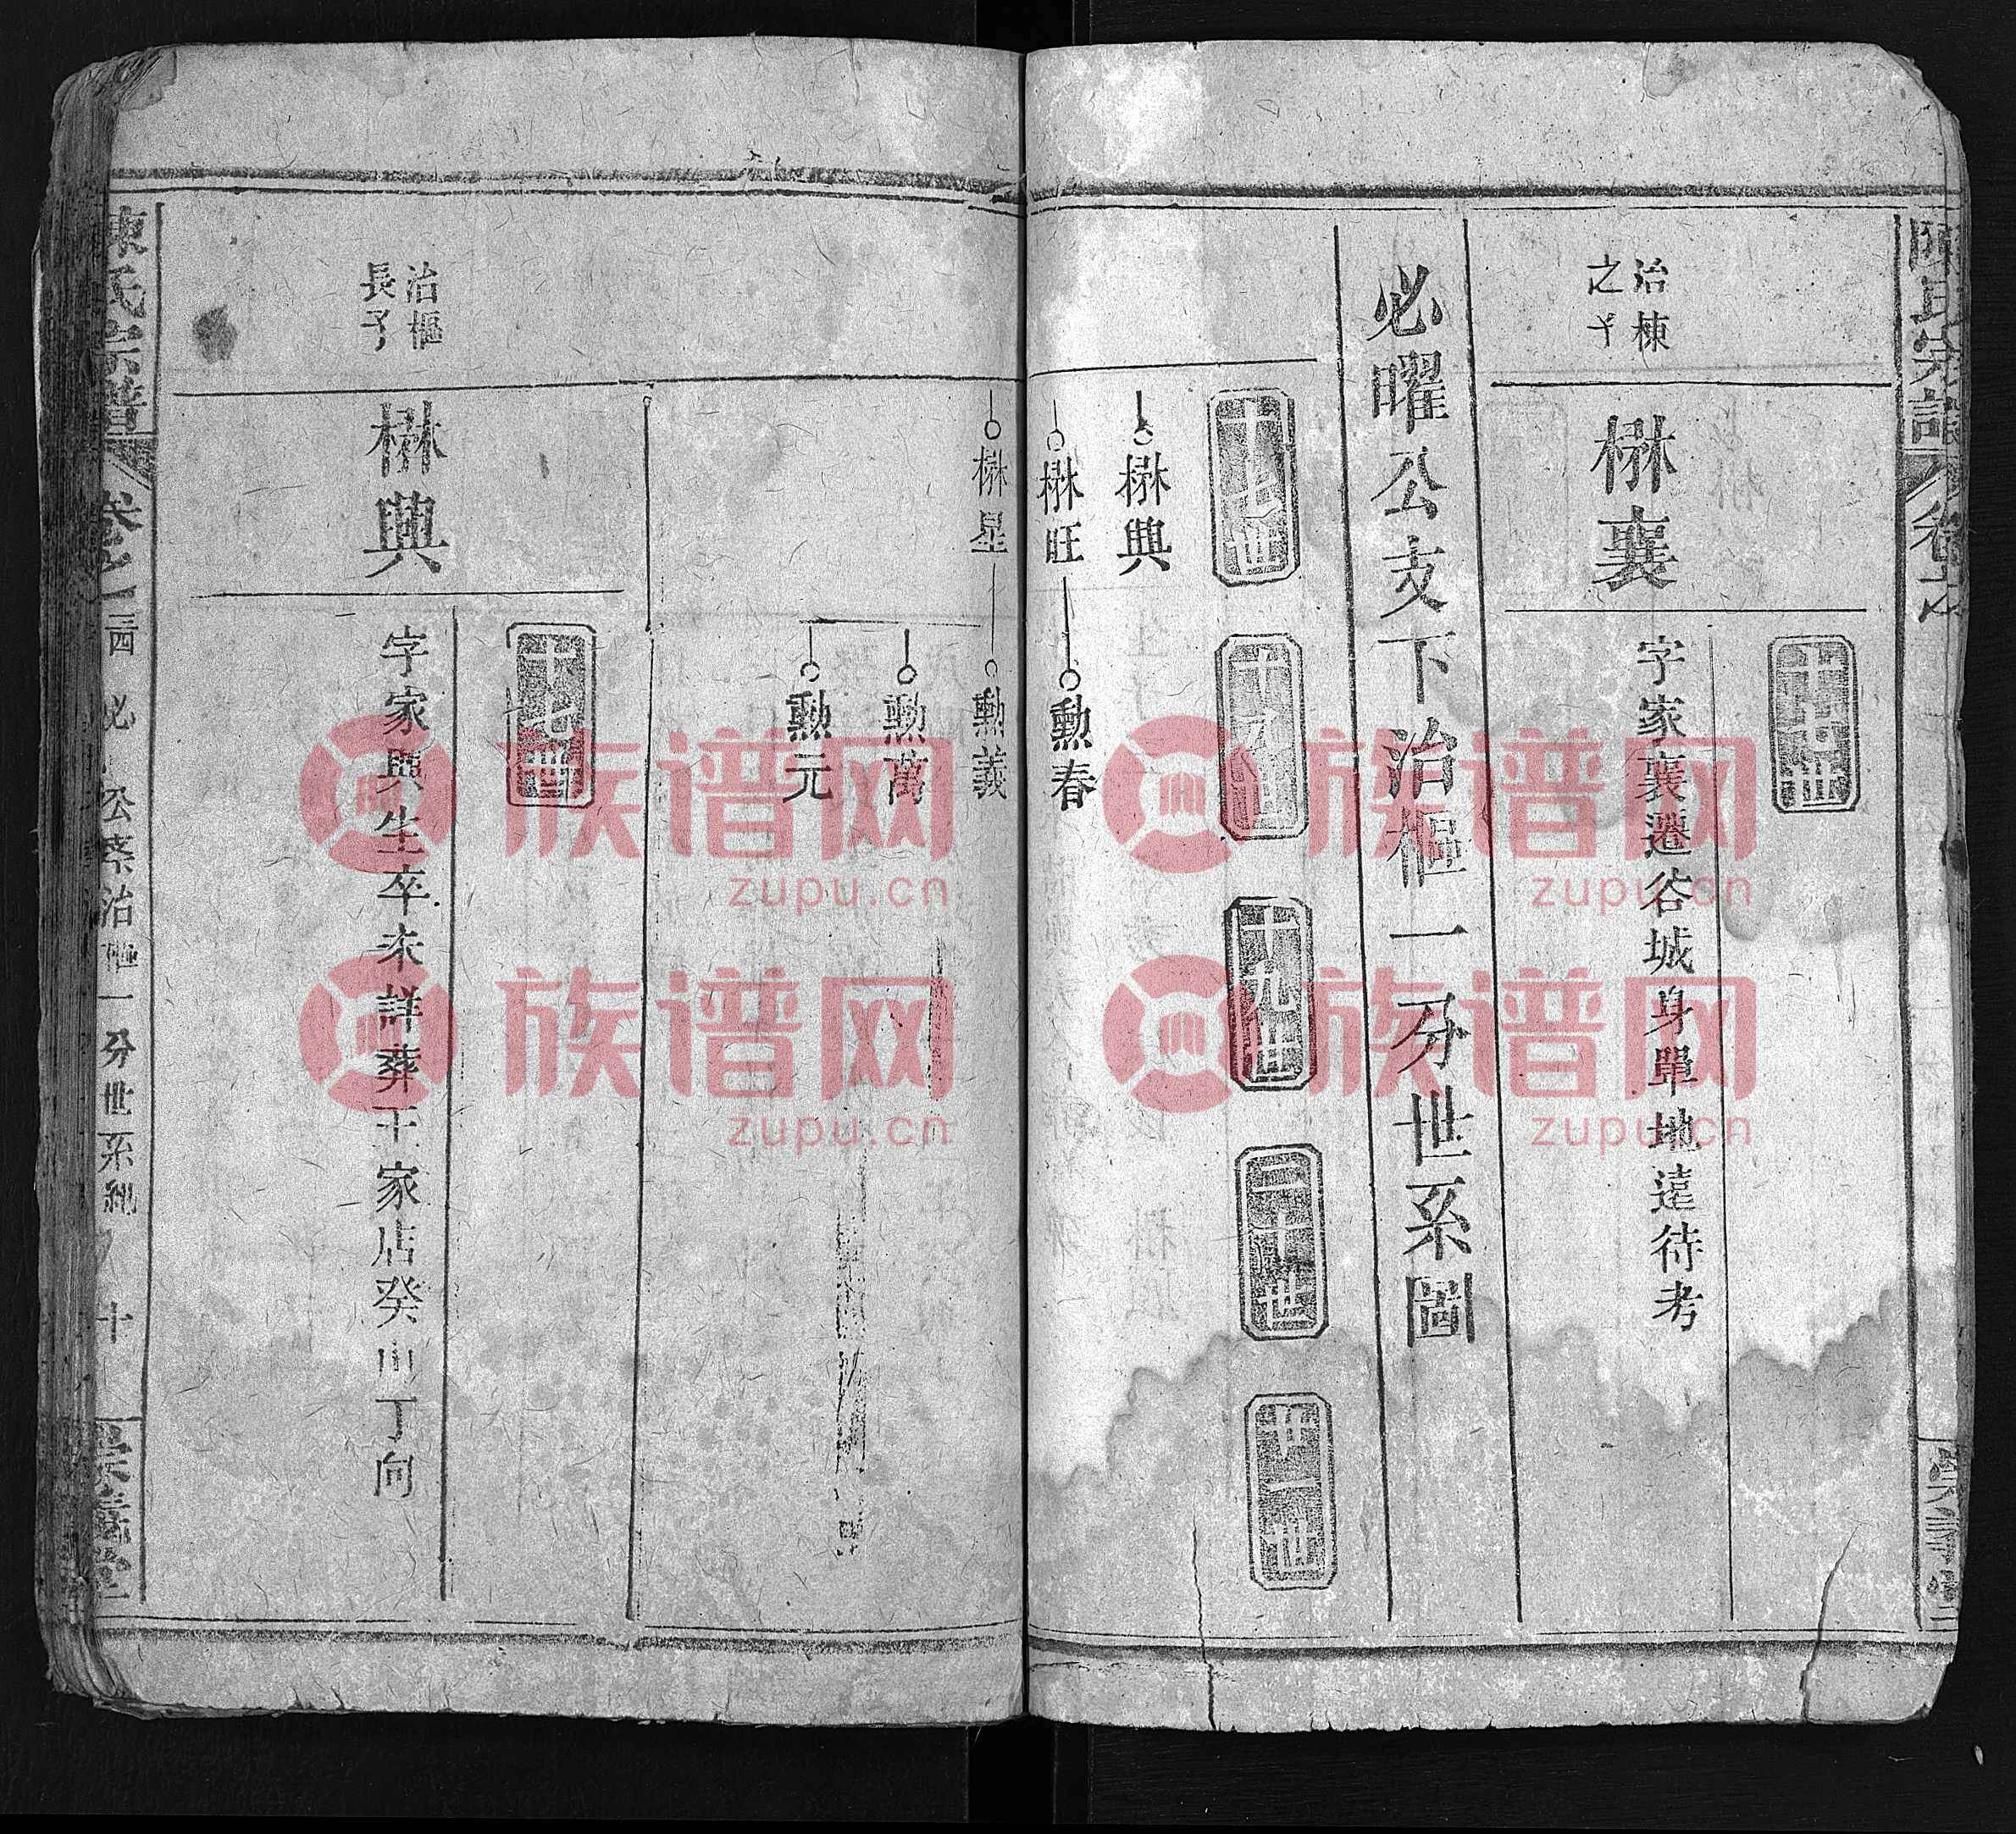 陳氏宗譜
卷之
十七世
治棟
之子
楙襄
字家襄遷谷城身單地遠待考
必曜公支下治樞一分世系圖
十七世
十八世
十九世
二十世
廿一世
楙興
楙旺
勲春
楙星
勲義
勲萬
勲元
十七世
治樞
長子
楙興
字家興生卒未詳葬王家店癸山丁向
陳氏宗譜
卷之
必
公
治樞一分世系
十
義堂
族谱网
zupu.cn
族谱网
zupu.cn
族谱网
zupu.cn
族谱网
zupu.cn